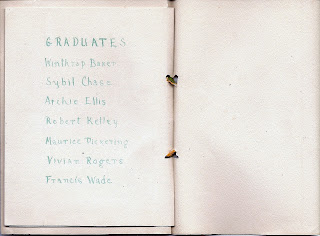 GRADUATES
Winthrop Baker
Sybil Chase
Archie Ellis
Robert Kelley
Maurice Pickering
Vivian Rogers
Francis Wade